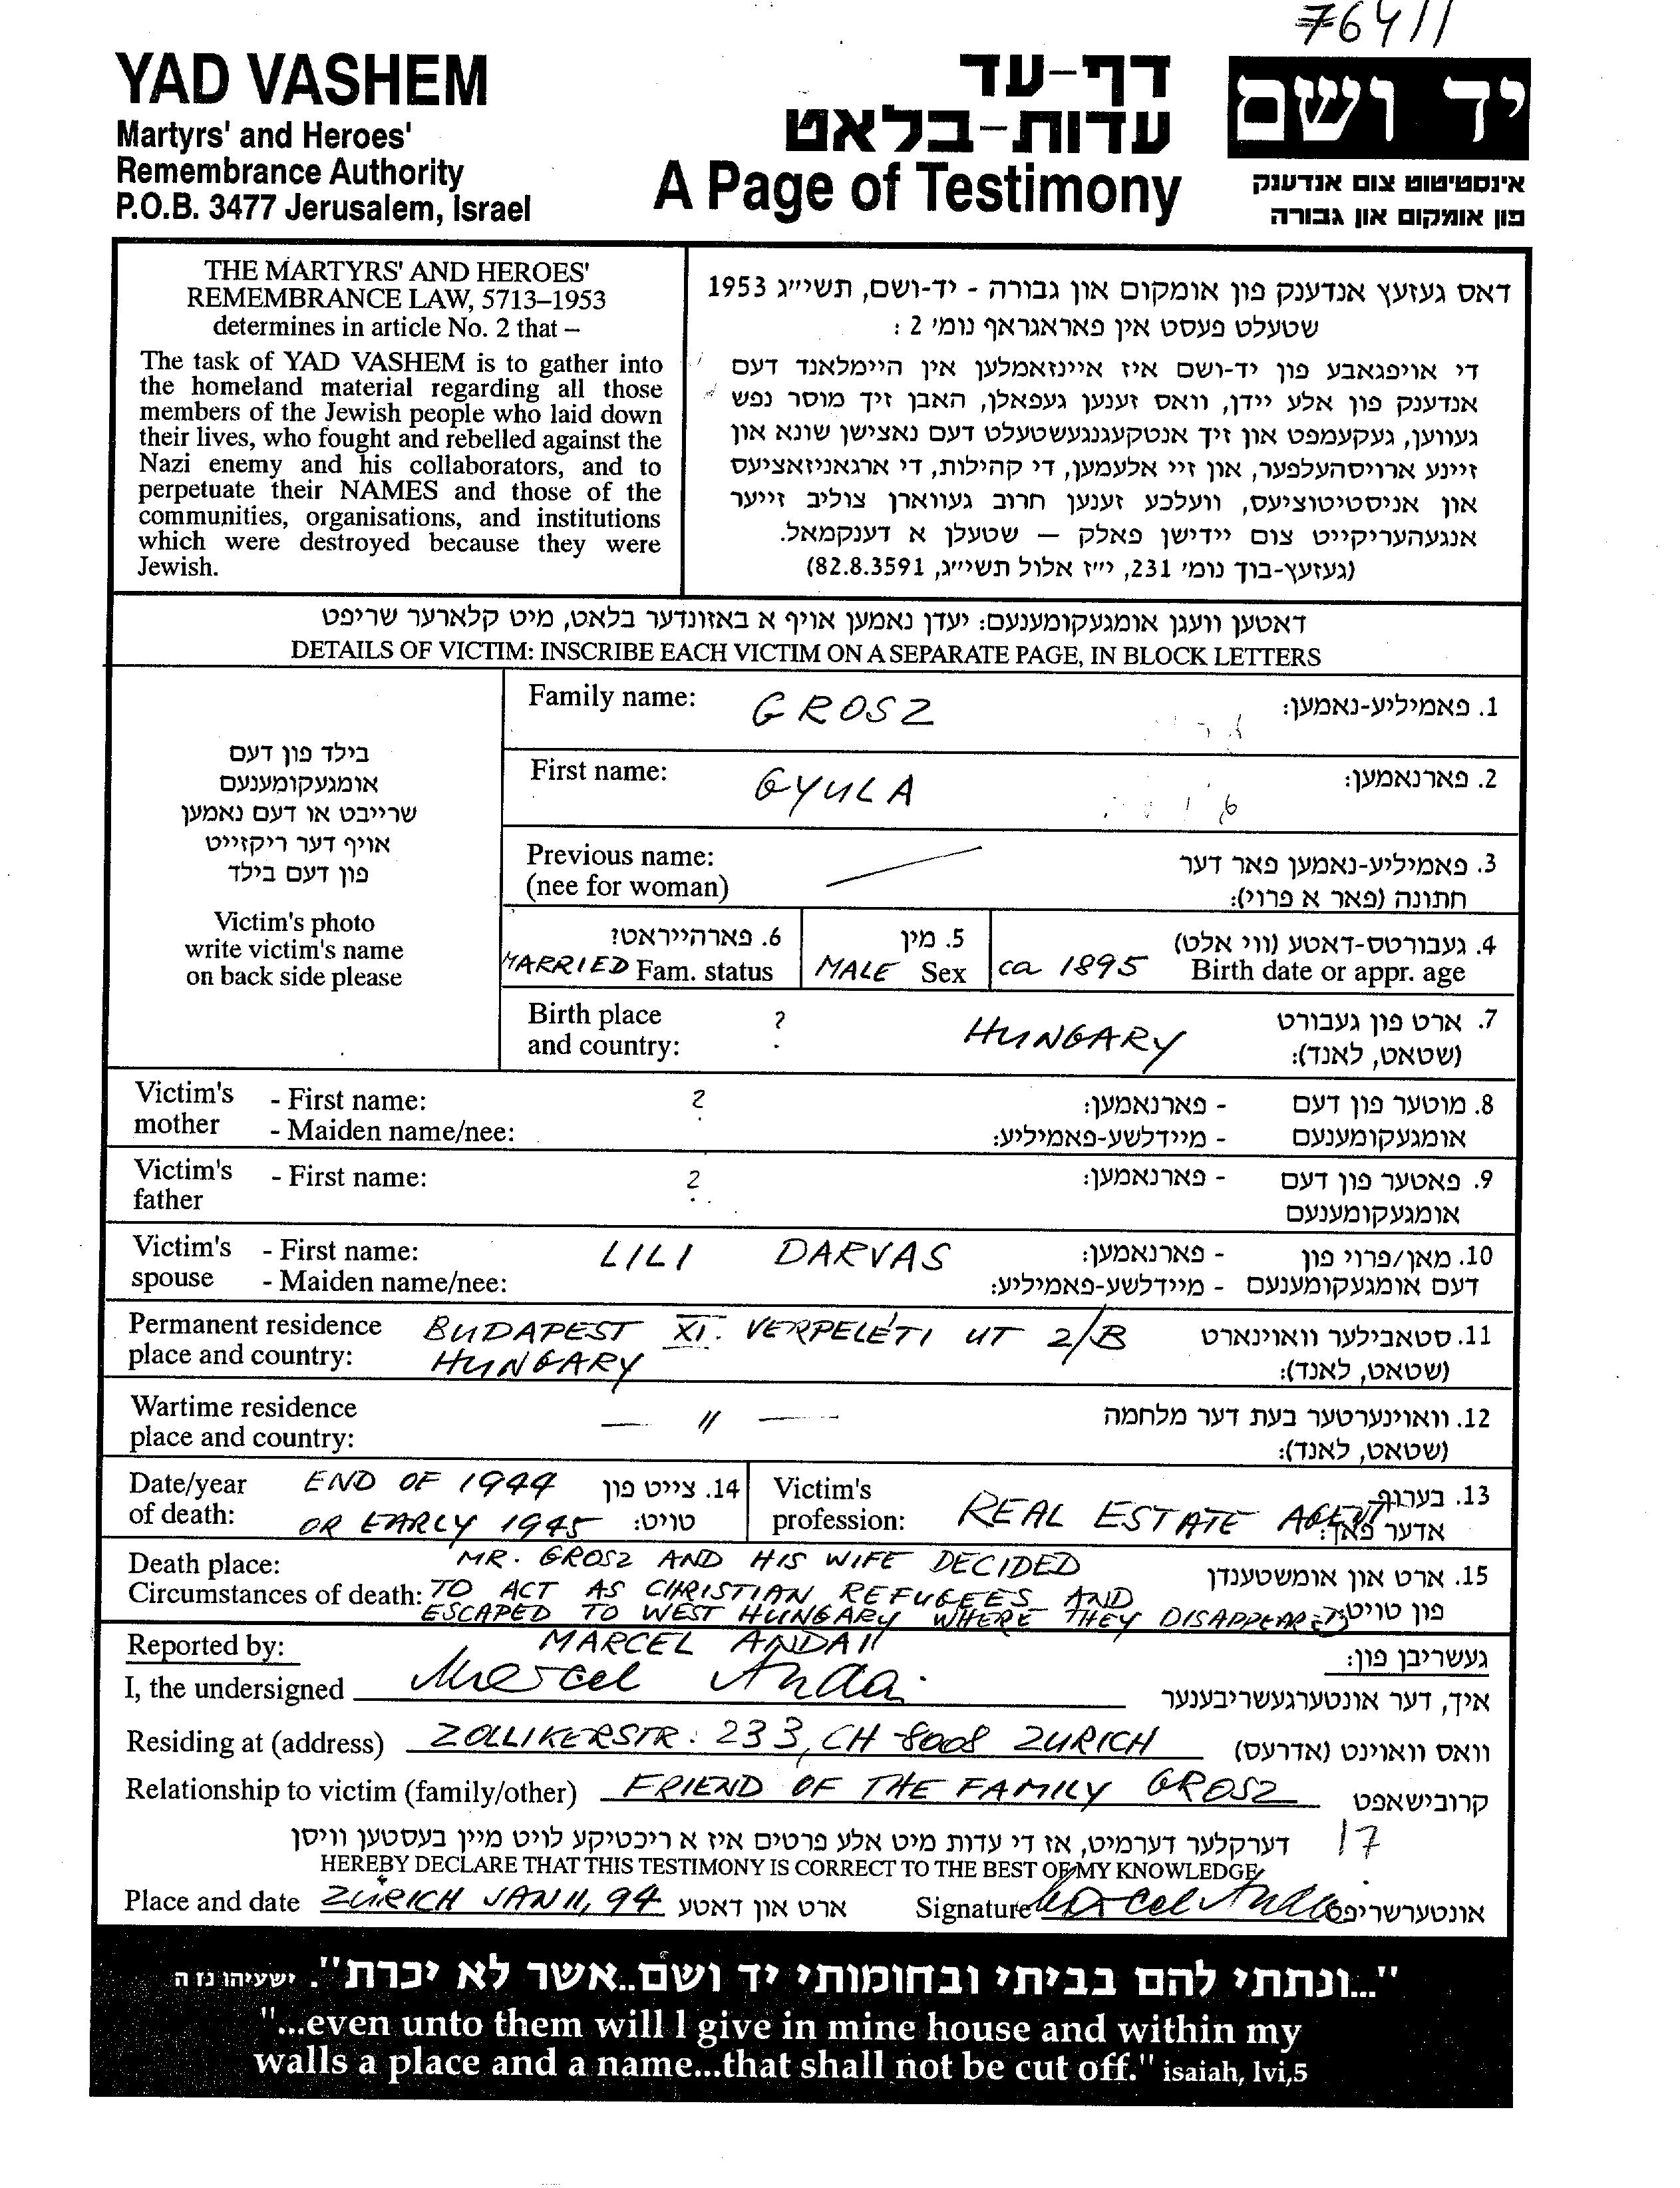 76411
YAD VASHEM
Martyrs' and Heroes'
Remembrance Authority
P.O.B. 3477 Jerusalem, Israel
דף-עד
עדות-בלאט
A Page of Testimony
יד ושם
אינסטיטוט צום אנדענק
פון אומקום און גבורה
THE MARTYRS' AND HEROES'
REMEMBRANCE LAW, 5713–1953
determines in article No. 2 that –
The task of YAD VASHEM is to gather into
the homeland material regarding all those
members of the Jewish people who laid down
their lives, who fought and rebelled against the
Nazi enemy and his collaborators, and to
perpetuate their NAMES and those of the
communities, organisations, and institutions
which were destroyed because they were
Jewish.
דאס געזעץ אנדענק פון אומקום און גבורה - יד-ושם, תשי״ג 1953
שטעלט פעסט אין פאראגראף נומ׳ 2 :
די אויפגאבע פון יד-ושם איז איינזאמלען אין היימלאנד דעם
אנדענק פון אלע יידן, וואס זענען געפאלן, האבן זיך מוסר נפש
געווען, געקעמפט און זיך אנטקעגנגעשטעלט דעם נאצישן שונא און
זיינע ארויסהעלפער, און זיי אלעמען, די קהילות, די ארגאניזאציעס
און אניסטיטוציעס, וועלכע זענען חרוב געווארן צוליב זייער
אנגעהעריקייט צום יידישן פאלק — שטעלן א דענקמאל.
(געזעץ-בוך נומ׳ 231, י״ז אלול תשי״ג, 82.8.3591)
דאטען וועגן אומגעקומענעם: יעדן נאמען אויף א באזונדער בלאט, מיט קלארער שריפט
DETAILS OF VICTIM: INSCRIBE EACH VICTIM ON A SEPARATE PAGE, IN BLOCK LETTERS
בילד פון דעם
אומגעקומענעם
שרייבט או דעם נאמען
אויף דער ריקזייט
פון דעם בילד
Victim's photo
write victim's name
on back side please
Family name: GROSZ 1. פאמיליע-נאמען:
First name: GYULA 2. פארנאמען:
Previous name: 3. פאמיליע-נאמען פאר דער
(nee for woman) חתונה (פאר א פרוי):
6. פארהייראט? 5. מין 4. געבורטס-דאטע (ווי אלט)
MARRIED Fam. status MALE Sex ca 1895 Birth date or appr. age
Birth place ? HUNGARY 7. ארט פון געבורט
and country: (שטאט, לאנד):
Victim's - First name: ? - פארנאמען: 8. מוטער פון דעם
mother - Maiden name/nee: - מיידלשע-פאמיליע: אומגעקומענעם
Victim's - First name: ? - פארנאמען: 9. פאטער פון דעם
father אומגעקומענעם
Victim's - First name: LILI DARVAS - פארנאמען: 10. מאן/פרוי פון
spouse - Maiden name/nee: - מיידלשע-פאמיליע: דעם אומגעקומענעם
Permanent residence BUDAPEST XI. VERPELÉTI UT 2/B 11. סטאבילער וואוינארט
place and country: HUNGARY (שטאט, לאנד):
Wartime residence — 〃 — 12. וואוינערטער בעת דער מלחמה
place and country: (שטאט, לאנד):
Date/year END OF 1944 14. צייט פון Victim's 13. בערוף
of death: OR EARLY 1945 טויט: profession: REAL ESTATE AGENT אדער פאך:
Death place: MR. GROSZ AND HIS WIFE DECIDED 15. ארט און אומשטענדן
Circumstances of death: TO ACT AS CHRISTIAN REFUGEES AND
ESCAPED TO WEST HUNGARY WHERE THEY DISAPPEARED פון טויט:
Reported by: MARCEL ANDAI געשריבן פון:
I, the undersigned Marcel Andai איך, דער אונטערגעשריבענער
Residing at (address) ZOLLIKERSTR. 233, CH-8008 ZURICH וואס וואוינט (אדרעס)
Relationship to victim (family/other) FRIEND OF THE FAMILY GROSZ קרובישאפט
דערקלער דערמיט, אז די עדות מיט אלע פרטים איז א ריכטיקע לויט מיין בעסטען וויסן 17
HEREBY DECLARE THAT THIS TESTIMONY IS CORRECT TO THE BEST OF MY KNOWLEDGE
Place and date ZÜRICH JAN 11, 94 ארט און דאטע Signature Marcel Andai אונטערשריפט
"...ונתתי להם בביתי ובחומותי יד ושם..אשר לא יכרת". ישעיהו נז ה
"...even unto them will I give in mine house and within my
walls a place and a name...that shall not be cut off." isaiah, lvi,5